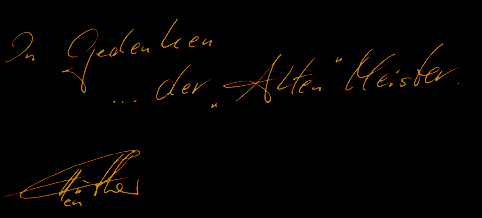 In Gedenken
... der „Alten" Meister.